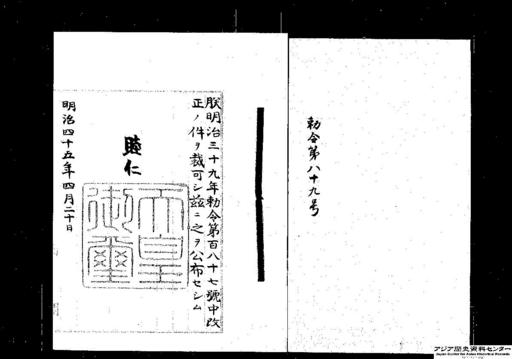 勅令第八十九号
朕明治三十九年勅令第百八十七號中改
正ノ件ヲ裁可シ茲ニ之ヲ公布セシム
睦仁
天皇御璽
明治四十五年四月二十日
アジア歴史資料センター
Japan Center for Asian Historical Records